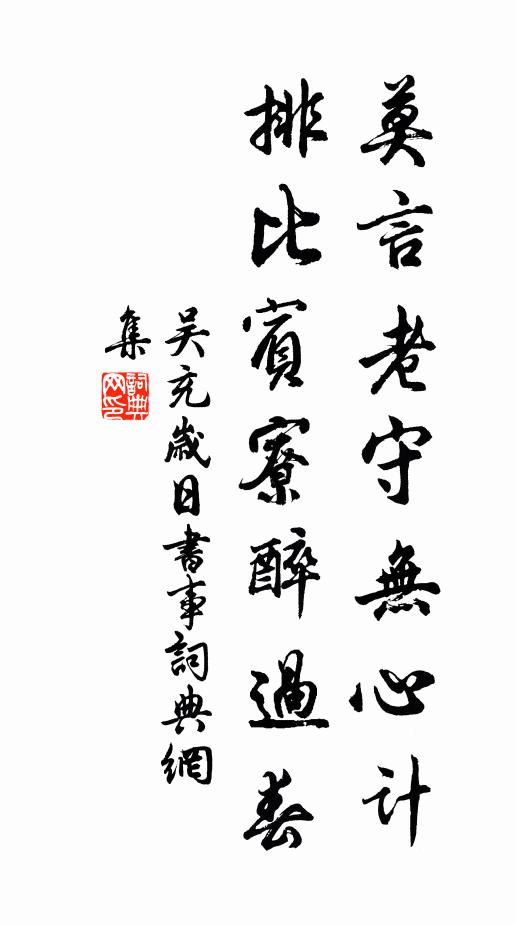 莫言老守無心計
排比賓寮醉過春
吴充歲日書事詞典網
集
詞典
網印